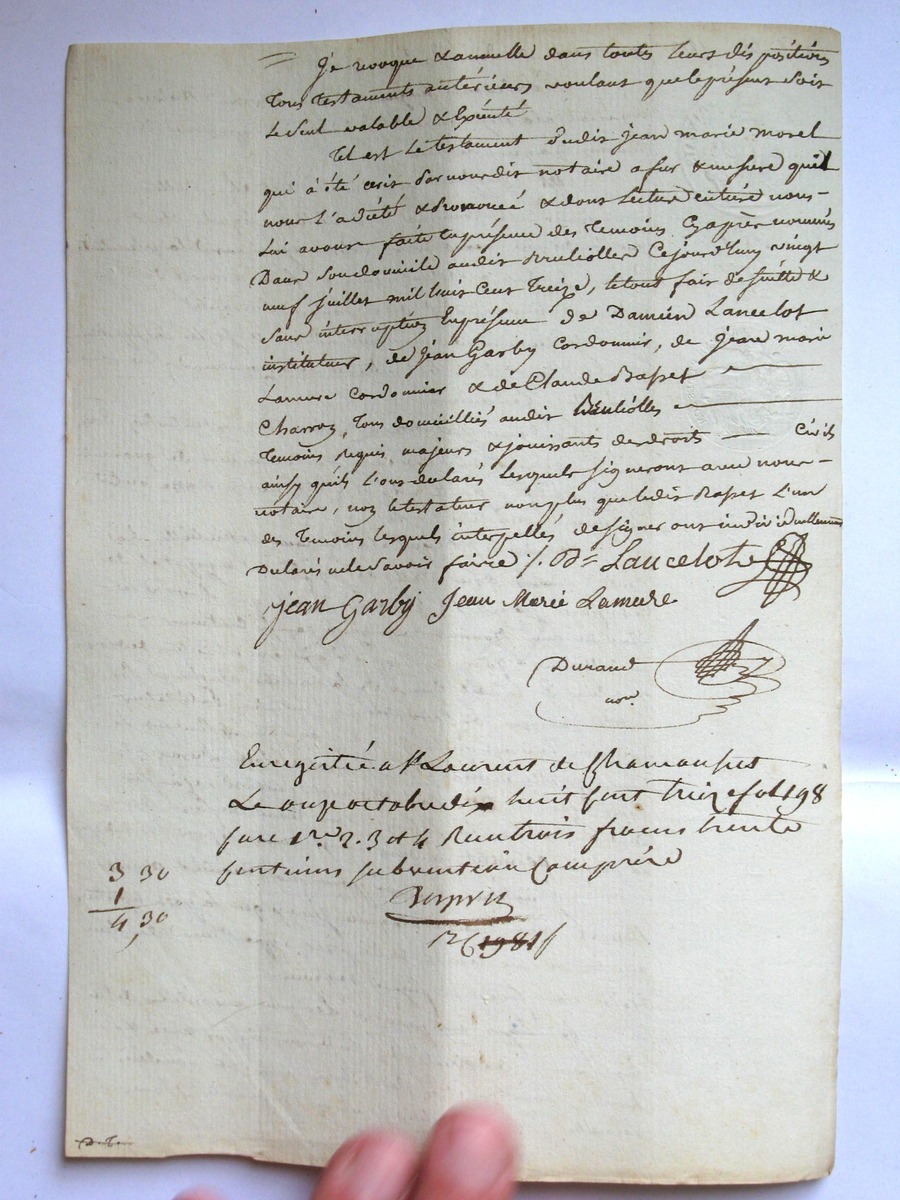 Je revoque & annulle dans toutes leurs dispositions
tous testaments antérieurs voulant que le présent soit
le seul valable & Exécuté
Tel est le testament dudit jean marie morel
qui à été ecrit par nous dit notaire a fur & mesure quil
nous l'a dicté & prononcé & dont lecture entiere nous-
lui avons faite En présence des temoins Cy après nommés
Dans son domicile audit Brulliolles Cejourd'huy vingt
neuf juillet mil huit cent treize, le tout fait de suitte &
sans interruption En présence de Damien Lancelot
instituteur, de jean Garby cordonnier, de jean marie
Lamure cordonnier & de Claude Basset
Charron, tous domiciliés audit Brulliolles
temoins requis majeurs & jouissants des droits civils
ainsy qu'ils l'ont declarés lesquels signeront avec nous-
notaire, non le testateur non plus que ledit Basset l'un
des temoins lesquels interpellés de signer ont individuellement
Declarés ne le savoir faire /. Dn Lancelot
jean Garby Jean Marie Lamure
Durand
nore
Enregistré a St Laurent de Chamousset
Le onze octobre dix huit cent treize fol 198
case 1re 2. 3 et 4 Reçu trois francs trente
centimes subvention Comprise
3 30
1
4,30
D. T.